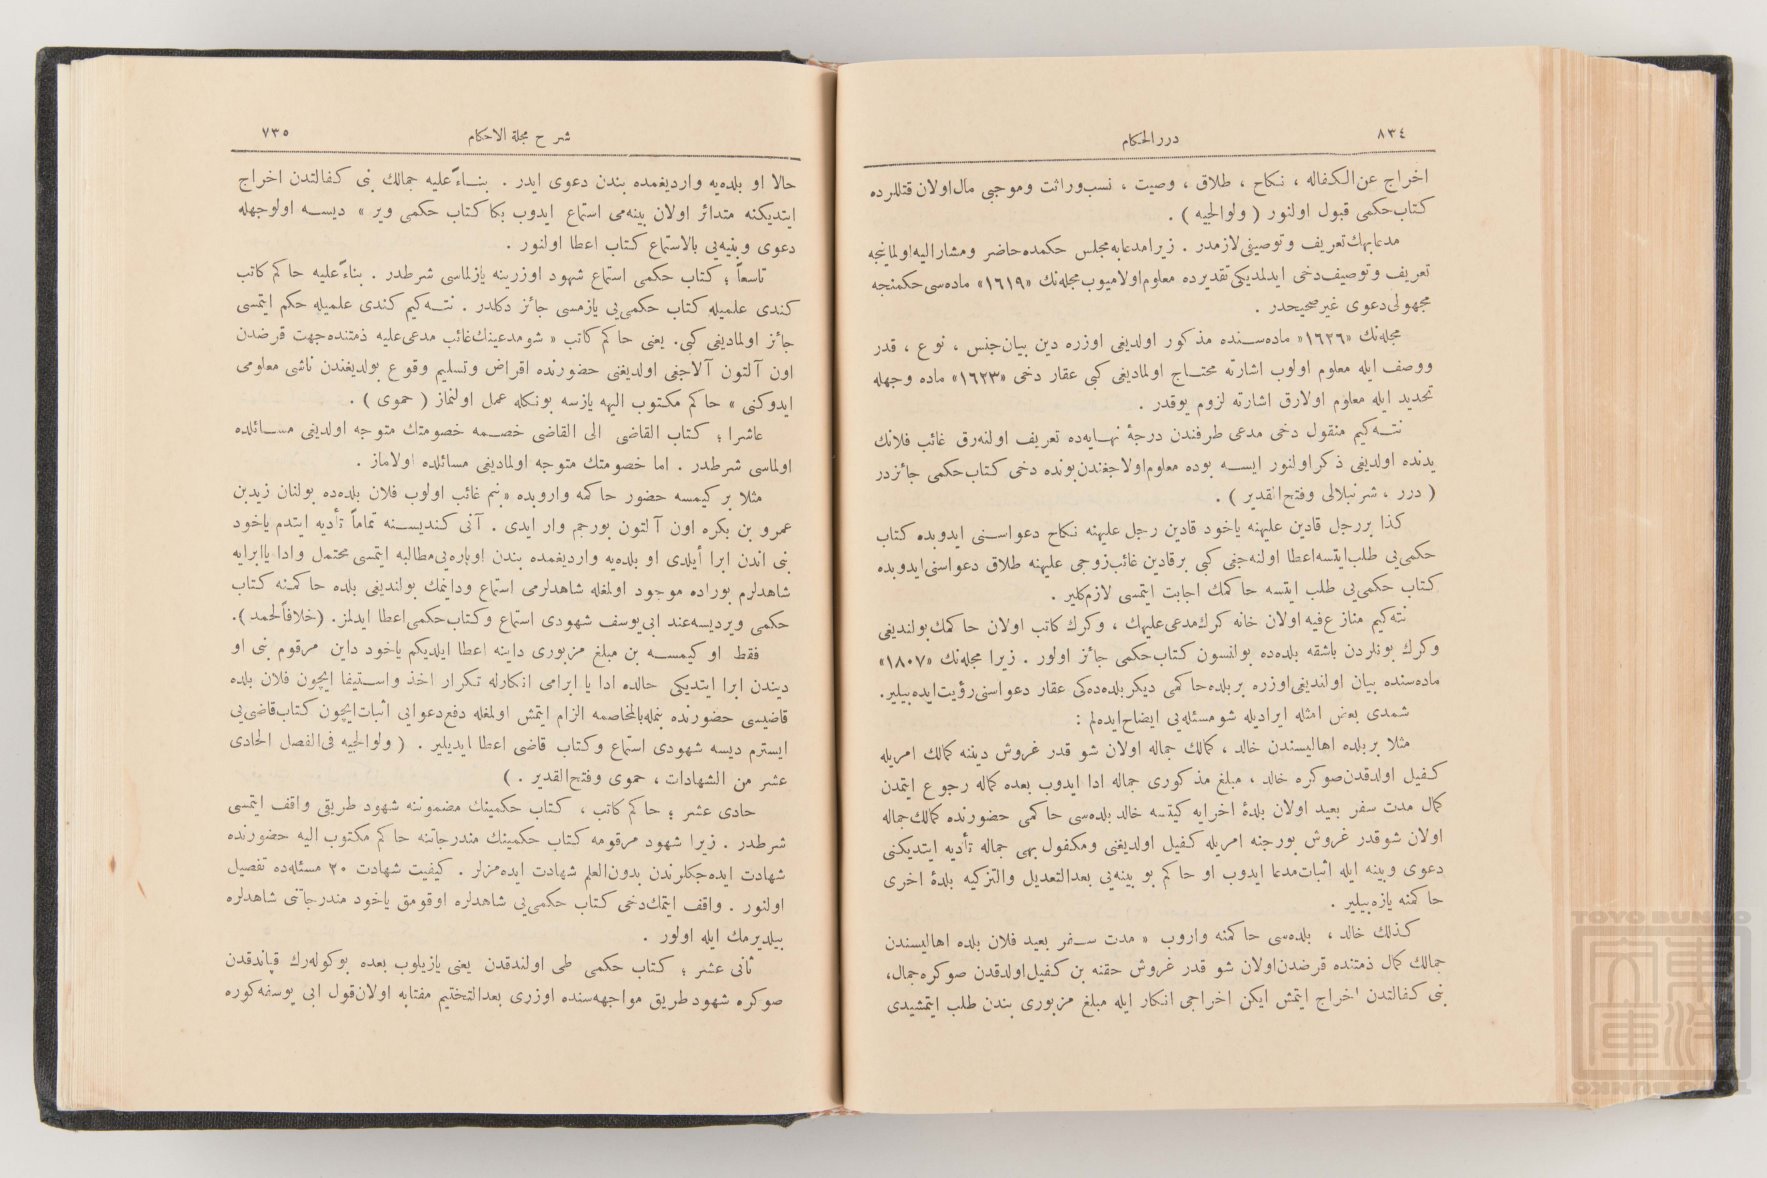 ٨٣٤
درر الحكام
اخراج عن الكفاله ، نكاح ، طلاق ، وصيت ، نسب وراثت وموجبى مال اولان قتللرده
كتاب حكمى قبول اولنور ( ولوالجيه ) .
مدعابهك تعريف وتوصيفى لازمدر . زيرا مدعابه مجلس حكمده حاضر ومشار اليه اولمايجه
تعريف وتوصيف دخى ايدلمديكى تقديرده معلوم اولاميوب مجله نك «١٦١٩» ماده سى حكمنجه
مجهولى دعوى غير صحيحدر .
مجله نك «١٦٢٦» ماده سنده مذكور اولديغى اوزره دين بيان جنس ، نوع ، قدر
ووصف ايله معلوم اولوب اشارته محتاج اولماديغى كبى عقار دخى «١٦٢٣» ماده وجهله
تحديد ايله معلوم اولارق اشارته لزوم يوقدر .
نته كيم منقول دخى مدعى طرفندن درجهٔ نهايه ده تعريف اولنه رق غائب فلانك
يدنده اولديغى ذكر اولنور ايسه بوده معلوم اولاجغندن بونده دخى كتاب حكمى جائزدر
( درر ، شرنبلالى وفتح القدير ) .
كذا بررجل قادين عليهنه ياخود قادين رجل عليهنه نكاح دعواسنى ايدوبده كتاب
حكمى يى طلب ايتسه اعطا اولنه جغى كبى برقادين غائب زوجى عليهنه طلاق دعواسنى ايدوبده
كتاب حكمى يى طلب ايتسه حاكمك اجابت ايتمسى لازم كلير .
نته كيم منازع فيه اولان خانه كرك مدعى عليهك ، وكرك كاتب اولان حاكمك بولنديغى
وكرك بونلردن باشقه بلده ده بولنسون كتاب حكمى جائز اولور . زيرا مجله نك «١٨٠٧»
ماده سنده بيان اولنديغى اوزره بر بلده حاكمى ديكر بلده ده كى عقار دعواسنى رؤيت ايده بيلير.
شمدى بعض امثله ايراديله شو مسئله يى ايضاح ايده لم :
مثلا بر بلده اهاليسندن خالد ، كمالك جماله اولان شو قدر غروش ديننه كمالك امريله
كفيل اولدقدن صوكره خالد ، مبلغ مذكورى جماله ادا ايدوب بعده كماله رجوع ايتمدن
كمال مدت سفر بعيد اولان بلدهٔ اخرايه كيتسه خالد بلده سى حاكمى حضورنده كمالك جماله
اولان شو قدر غروش بورجنه امريله كفيل اولديغنى ومكفول بهى جماله تأديه ايتديكنى
دعوى وبينه ايله اثبات مدعا ايدوب او حاكم بو بينه يى بعد التعديل والتزكيه بلدهٔ اخرى
حاكمنه يازه بيلير .
كذلك خالد ، بلده سى حاكمنه واروب « مدت سفر بعيد فلان بلده اهاليسندن
جمالك كمال ذمتنده قرضدن اولان شو قدر غروش حقنه بن كفيل اولدقدن صوكره جمال،
بنى كفالتدن اخراج ايتمش ايكن اخراجى انكار ايله مبلغ مزبورى بندن طلب ايتمشيدى
شرح مجلة الاحكام
٧٣٥
حالا او بلده يه وارديغمده بندن دعوى ايدر . بناءً عليه جمالك بنى كفالتدن اخراج
ايتديكنه متدائر اولان بينه مى استماع ايدوب بكا كتاب حكمى وير » ديسه اولوجهله
دعوى وبنيه يى بالاستماع كتاب اعطا اولنور .
تاسعاً ؛ كتاب حكمى استماع شهود اوزرينه يازلماسى شرطدر . بناءً عليه حاكم كاتب
كندى علميله كتاب حكمى يى يازمسى جائز دكلدر . نته كيم كندى علميله حكم ايتمسى
جائز اولماديغى كبى. يعنى حاكم كاتب « شو مدعينك غائب مدعى عليه ذمتنده جهت قرضدن
اون آلتون آلاجغى اولديغنى حضورنده اقراض وتسليم وقوع بولديغندن ناشى معلومى
ايدوكنى » حاكم مكتوب اليهه يازسه بونكله عمل اولنماز ( حموى ) .
عاشرا ؛ كتاب القاضى الى القاضى خصمه خصومتك متوجه اولديغى مسائلده
اولماسى شرطدر . اما خصومتك متوجه اولماديغى مسائلده اولاماز .
مثلا بر كيمسه حضور حاكمه واروبده « بنم غائب اولوب فلان بلده ده بولنان زيد بن
عمرو بن بكره اون آلتون بورجم وار ايدى . آنى كنديسنه تماماً تأديه ايتدم ياخود
بنى اندن ابرا أيلدى او بلده يه وارديغمده بندن اوپاره يى مطالبه ايتمسى محتمل وادا ياابرايه
شاهدلرم بوراده موجود اولمغله شاهدلرمى استماع وداينمك بولنديغى بلده حاكمنه كتاب
حكمى ويرديسه عند ابى يوسف شهودى استماع وكتاب حكمى اعطا ايدلمز. (خلافاً لمحمد ).
فقط او كيمسه بن مبلغ مزبورى داينه اعطا ايلديكم ياخود داين مرقوم بنى او
ديندن ابرا ايتديكى حالده ادا يا ابرامى انكارله تكرار اخذ واستيفا ايچون فلان بلده
قاضيسى حضورنده بنمله بالمخاصمه الزام ايتمش اولمغله دفع دعوايى اثبات ايچون كتاب قاضى يى
ايسترم ديسه شهودى استماع وكتاب قاضى اعطا ايديلير . ( ولوالجيه فى الفصل الحادى
عشر من الشهادات ، حموى وفتح القدير . )
حادى عشر ؛ حاكم كاتب ، كتاب حكمينك مضموننه شهود طريقى واقف ايتمسى
شرطدر . زيرا شهود مرقومه كتاب حكمينك مندرجاتنه حاكم مكتوب اليه حضورنده
شهادت ايده جكلرندن بدون العلم شهادت ايده مزلر . كيفيت شهادت ٢٠ مسئله ده تفصيل
اولنور . واقف ايتمك دخى كتاب حكمى يى شاهدلره اوقومق ياخود مندرجاتنى شاهدلره
بيلديرمك ايله اولور .
ثانى عشر ؛ كتاب حكمى طى اولندقدن يعنى يازيلوب بعده بوكوله رك قپاندقدن
صوكره شهود طريق مواجهه سنده اوزرى بعد التختيم مفتابه اولان قول ابى يوسفه كوره
TOYO BUNKO